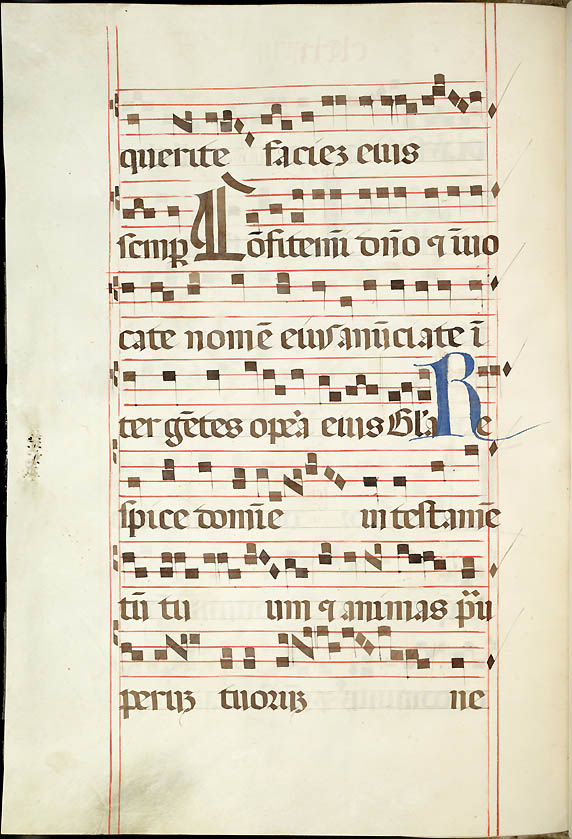 querite faciez eius
semp Cōfitemi dño ⁊ īuo
cate nomē eius anūciate ī
ter gētes opera eius Gl'a Re
spice domie in testamē
tū tu um ⁊ animas pau
perū tuorū ne